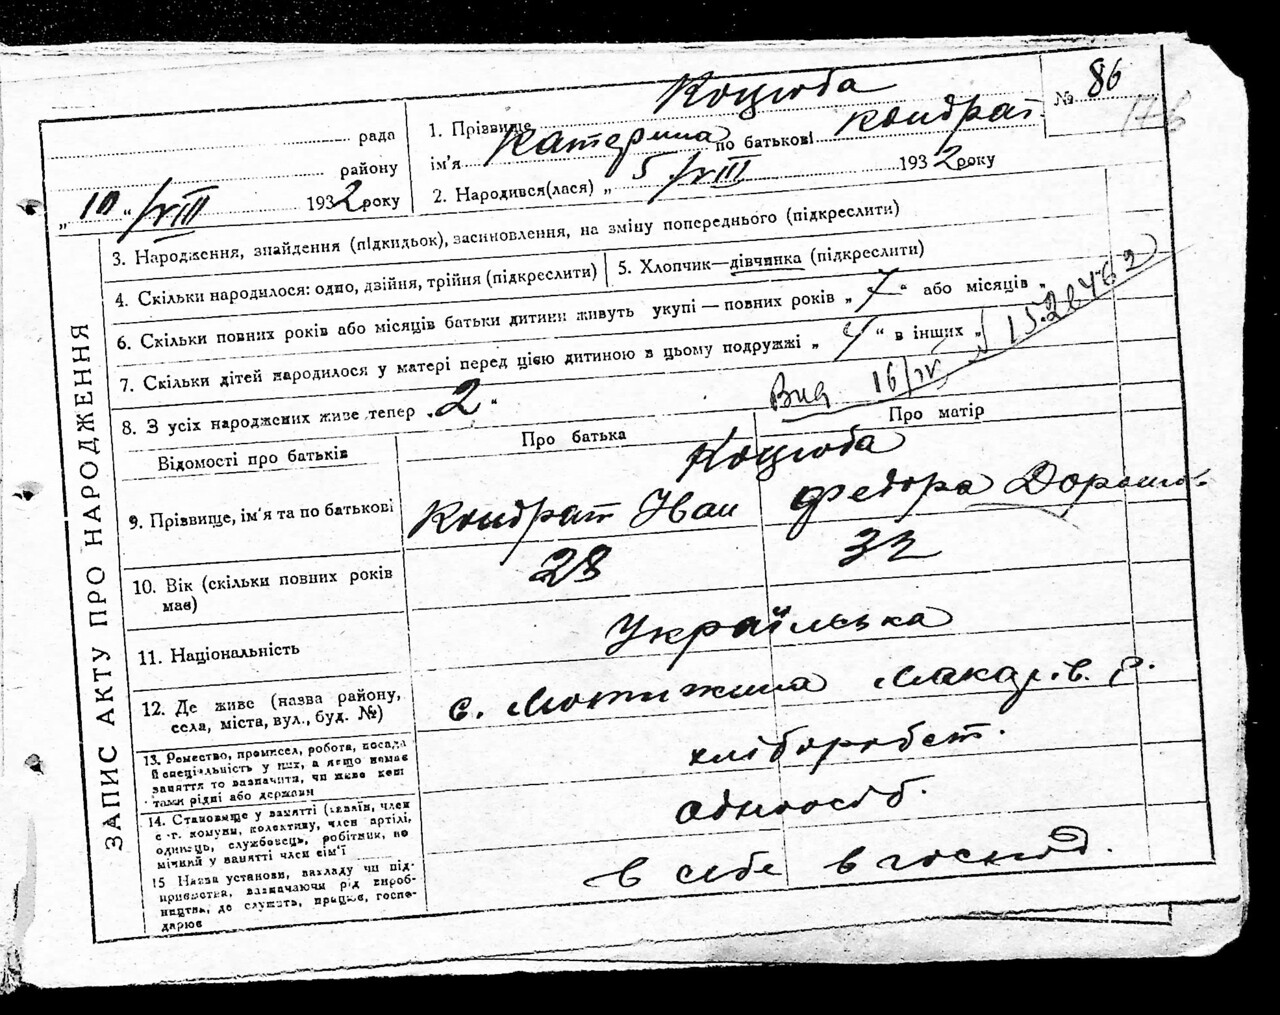 № 86
176
рада
району
„10“ /VIII 1932 року
1. Прізвище Коцюба
ім'я Катерина по батькові Кондрат.
2. Народився(лася) „ 5 /VIII 1932 року
ЗАПИС АКТУ ПРО НАРОДЖЕННЯ
3. Народження, знайдення (підкидьок), засиновлення, на зміну попереднього (підкреслити)
4. Скільки народилося: одно, двійня, трійня (підкреслити)
5. Хлопчик—дівчинка (підкреслити)
6. Скільки повних років або місяців батьки дитини живуть укупі — повних років „ 7 “ або місяців „
7. Скільки дітей народилося у матері перед цією дитиною в цьому подружжі „ 4 “ в інших „
8. З усіх народжених живе тепер „ 2 “
Вид 16/IV
Відомості про батьків
Про батька
Про матір
Коцюба
9. Прізвище, ім'я та по батькові
Кондрат Іван
Федора Дорошов.
10. Вік (скільки повних років має)
28
32
11. Національність
Українська
12. Де живе (назва району,
села, міста, вул., буд. №)
с. Мотижина Макарів. р.
13. Ремество, промисел, робота, посада
й спеціяльність у них, а якщо немає
заняття то зазначити, чи живе кош
тами рідні або держави
хліборобст.
14. Становище у занятті (хазяїн, член
с.-г. комуни, колективу, член артілі,
одинець, службовець, робітник, по
мічний у занятті член сім'ї
одноосіб.
15 Назва установи, закладу чи під-
приємства, зазначаючи рід вироб-
ництва, де служить, працює, госпо-
дарює
в себе в господ.